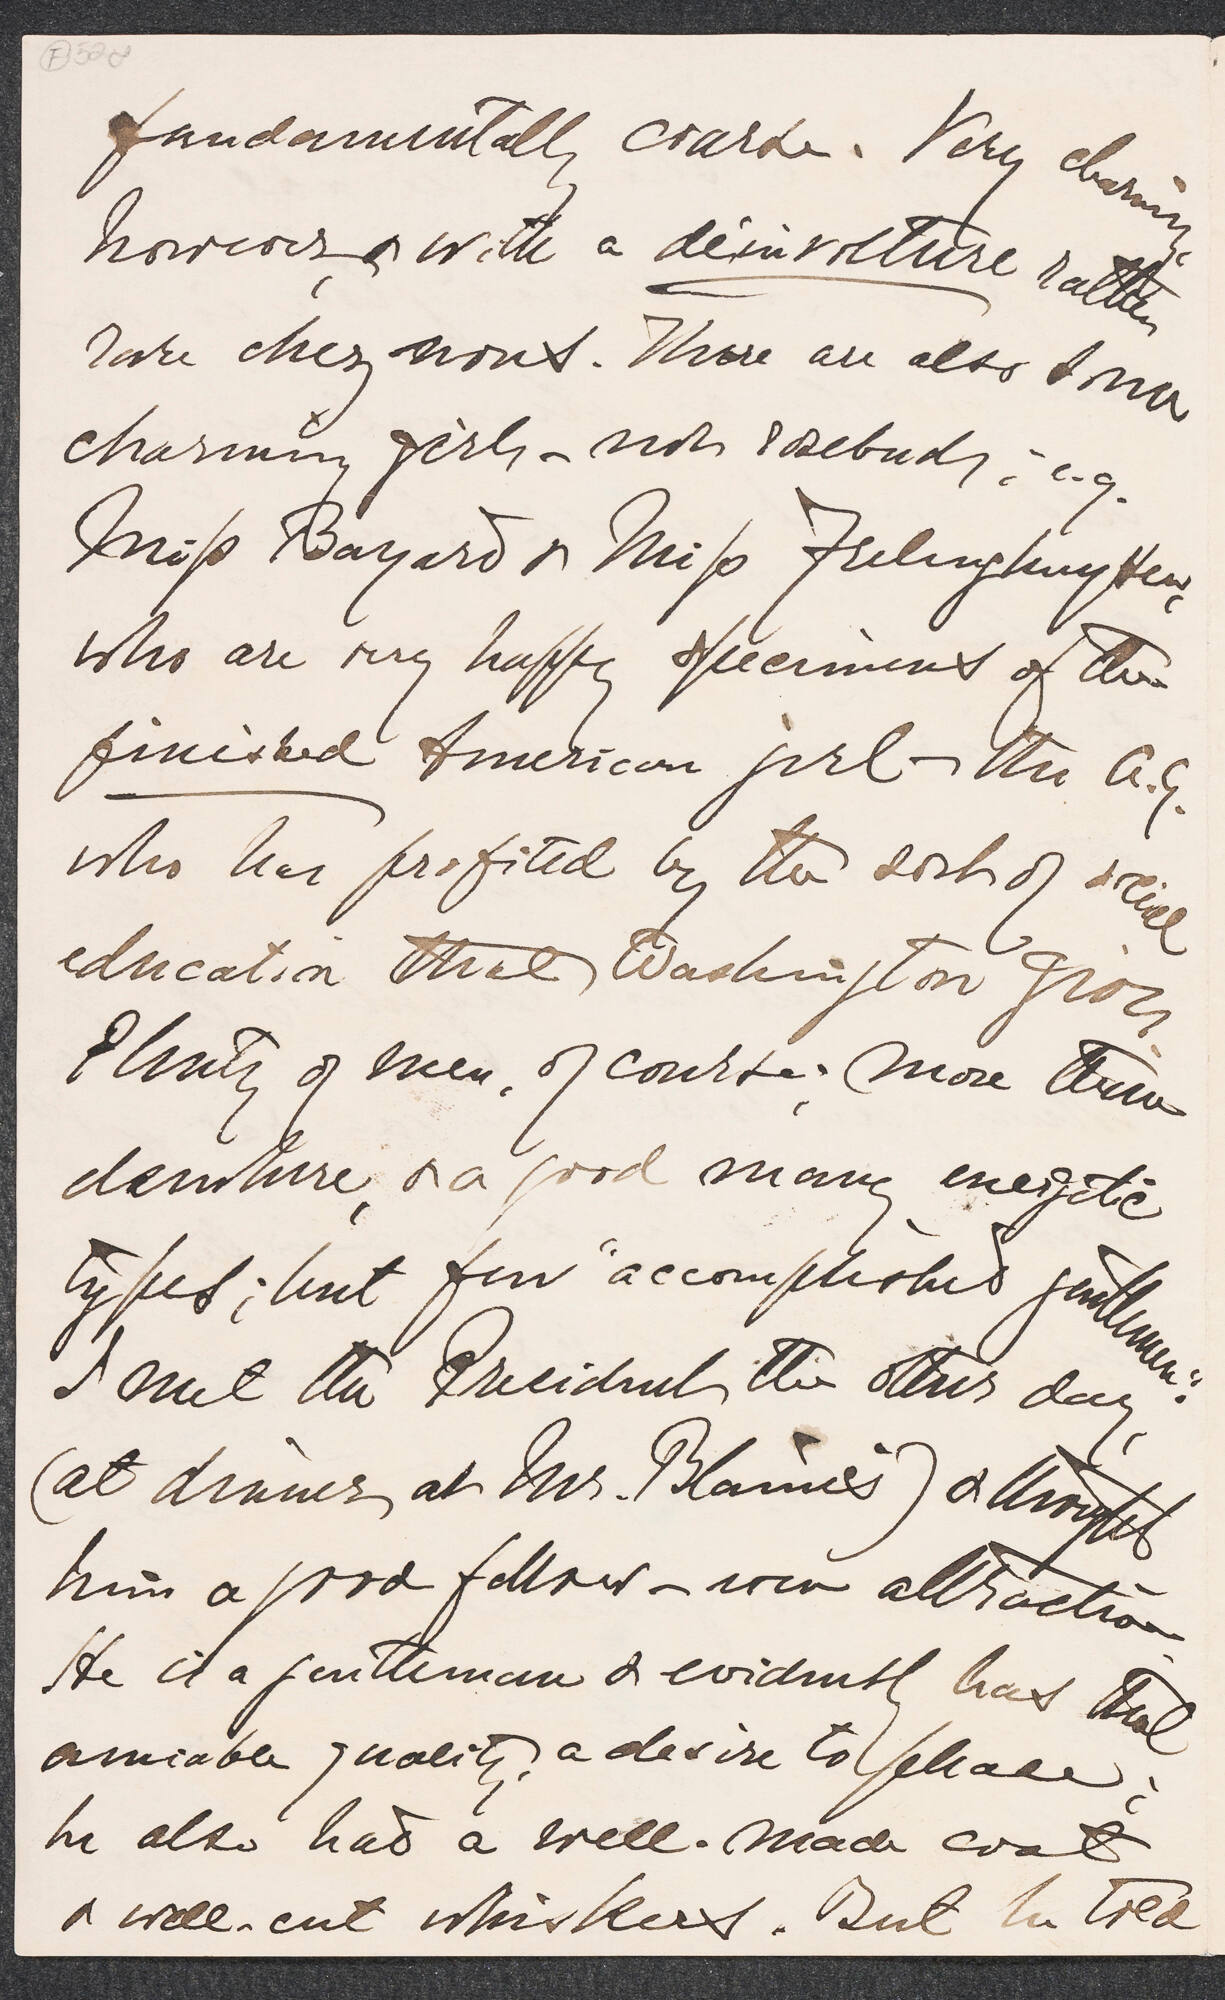 fundamentally coarse. Very charming,
however, & with a désinvolture rather
rare chez nous. There are also some
charming girls – not rosebuds; e.g.
Miss Bayard & Miss Frelinghuysen,
who are very happy specimens of the
finished American girl – the A.G.
who has profited by the sort of social
education that Washington gives.
Plenty of men, of course; more than
elsewhere, & a good many energetic
types; but few "accomplished gentlemen":
I met the President the other day,
(at dinner, at Mr. Blaine's) & thought
him a good fellow – even attractive.
He is a gentleman & evidently has that
amiable quality, a desire to please;
he also had a well-made coat
& well-cut whiskers. But he told